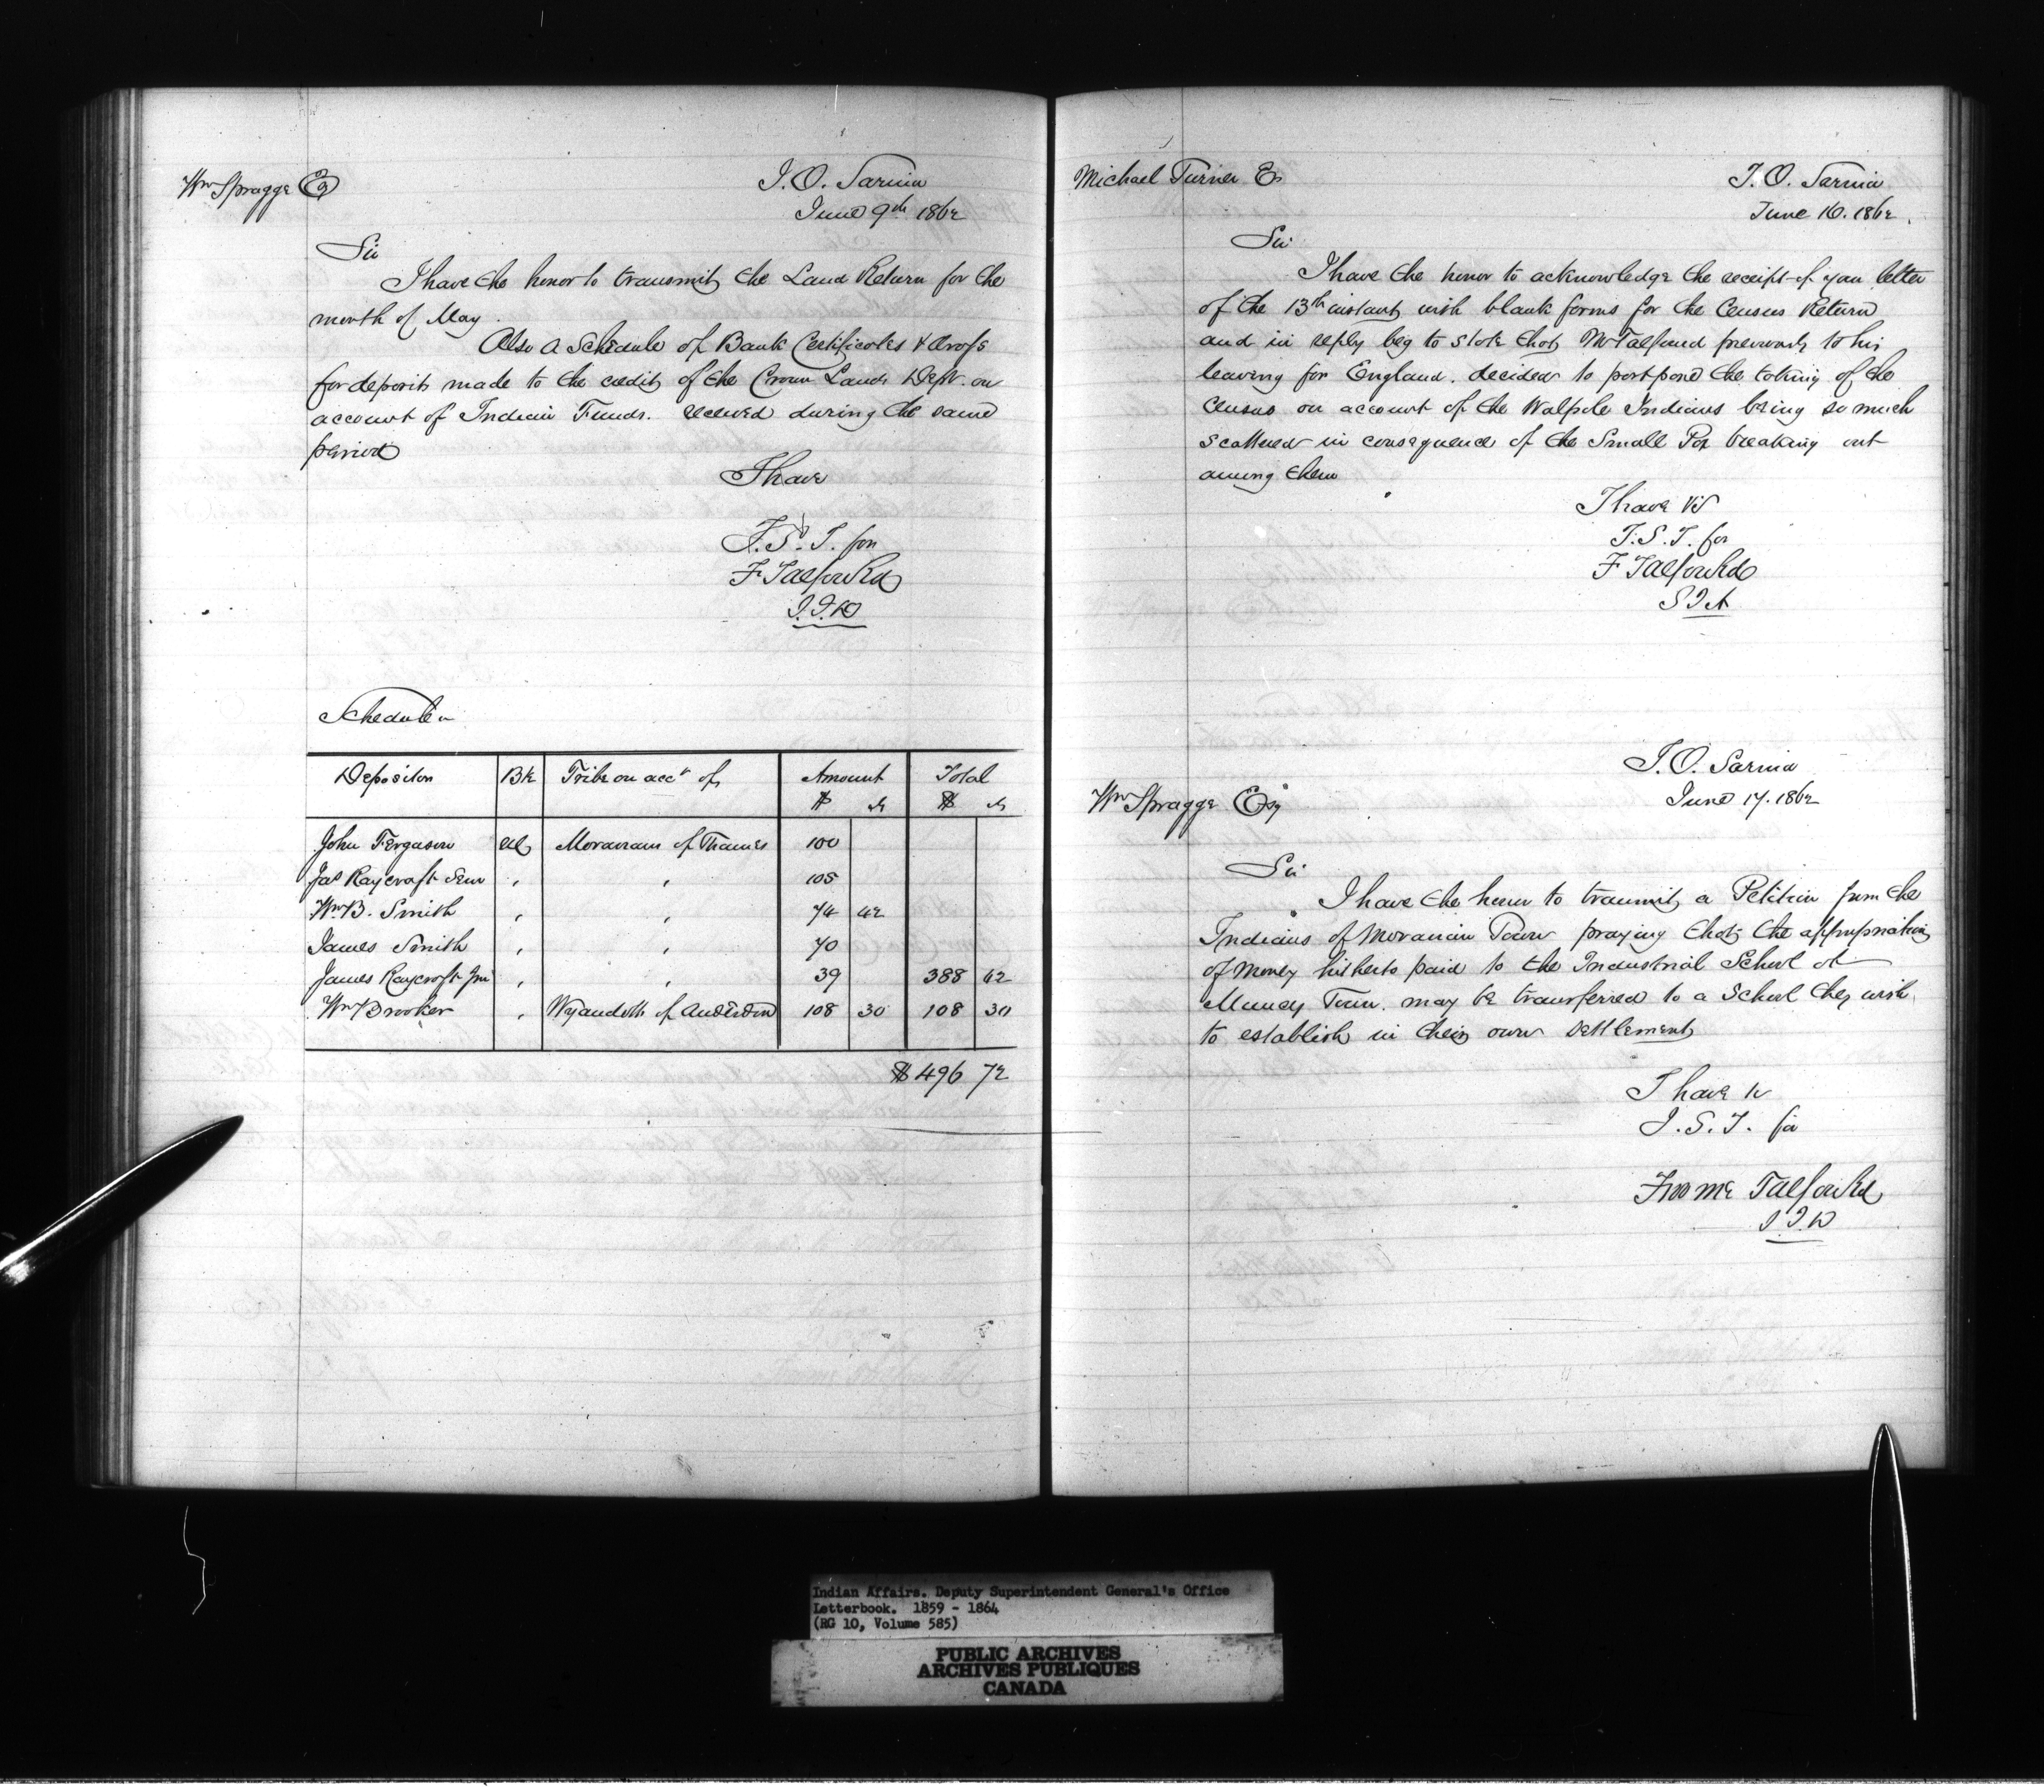 Wm Spragge Esq
I.O. Sarnia
June 9th 1862
Sir
I have the honor to transmit the Land Return for the
month of May.
Also a Schedule of Bank Certificates &
for deposits made to the credit of the Crown Lands Dept. on
account of Indian Funds. received during the same
period
I have
F. Talfourd
Schedule
Depositor Bk Tribe on acct of Amount Total
$ cts $ cts
John Ferguson Moravians of Thames 100
Jas Raycroft Senr " " 105
Wm B. Smith " " 74 42
James Smith " " 70
James Raycroft Jnr " " 39 388 42
Wm Brooker " Wyandotts of Anderdon 108 30 108 30
$496 72
Michael Turner Es
I.O. Sarnia
June 16. 1862.
Sir
I have the honor to acknowledge the receipt of your letter
of the 13th instant with blank forms for the Census Return
and in reply beg to state that Mr Talfourd previously to his
leaving for England. decided to postpone the taking of the
Census on account of the Walpole Indians being so much
scattered in consequence of the Small Pox breaking out
among them
I have
for
F Talfourd
I.O. Sarnia
June 17. 1862
Wm Spragge Esq
Sir
I have the honor to transmit a Petition from the
Indians of Moravian Town praying that the appropriation
of Money hitherto paid to the Industrial School at
Muncey Town. may be transferred to a School they wish
to establish in their own settlement
I have
for
Froome Talfourd
Indian Affairs. Deputy Superintendent General's Office
Letterbook. 1859 - 1864
(RG 10, Volume 585)
PUBLIC ARCHIVES
ARCHIVES PUBLIQUES
CANADA